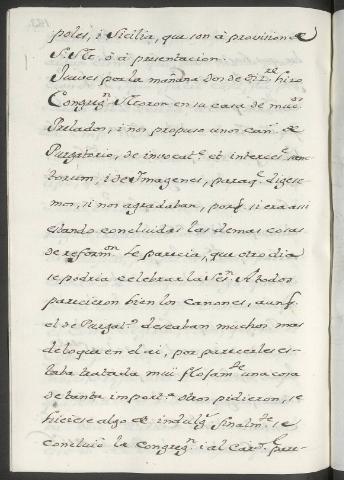 poles, i Sicilia, que son à provision de
S. Stt. ò à presentacion.
Jueves por la mañana dos de Dizre. hizo
Congregn. Moron en su casa de muchos
Prelados, i nos propuso unos can.s de
Purgatorio, de invocat.e et interces.e sanc
torum, i de Imagenes, para q.e digese
mos, si nos agradaban, porq. si era asi
estando concluidas las demas cosas
de reformon. le parecia, que otro dia
se podria celebrar la Sesn. A todos
parecieron bien los canones, aunq.
el de Purgat.o deseaban muchos mas
de lo que en el ai, por parecerles es-
taba tratada mui flojam.te una cosa
de tanta import.a otros pidieron, se
hiciese algo de indulg.s finalm.te se
concluiò la congregn. i al Card.l pare-